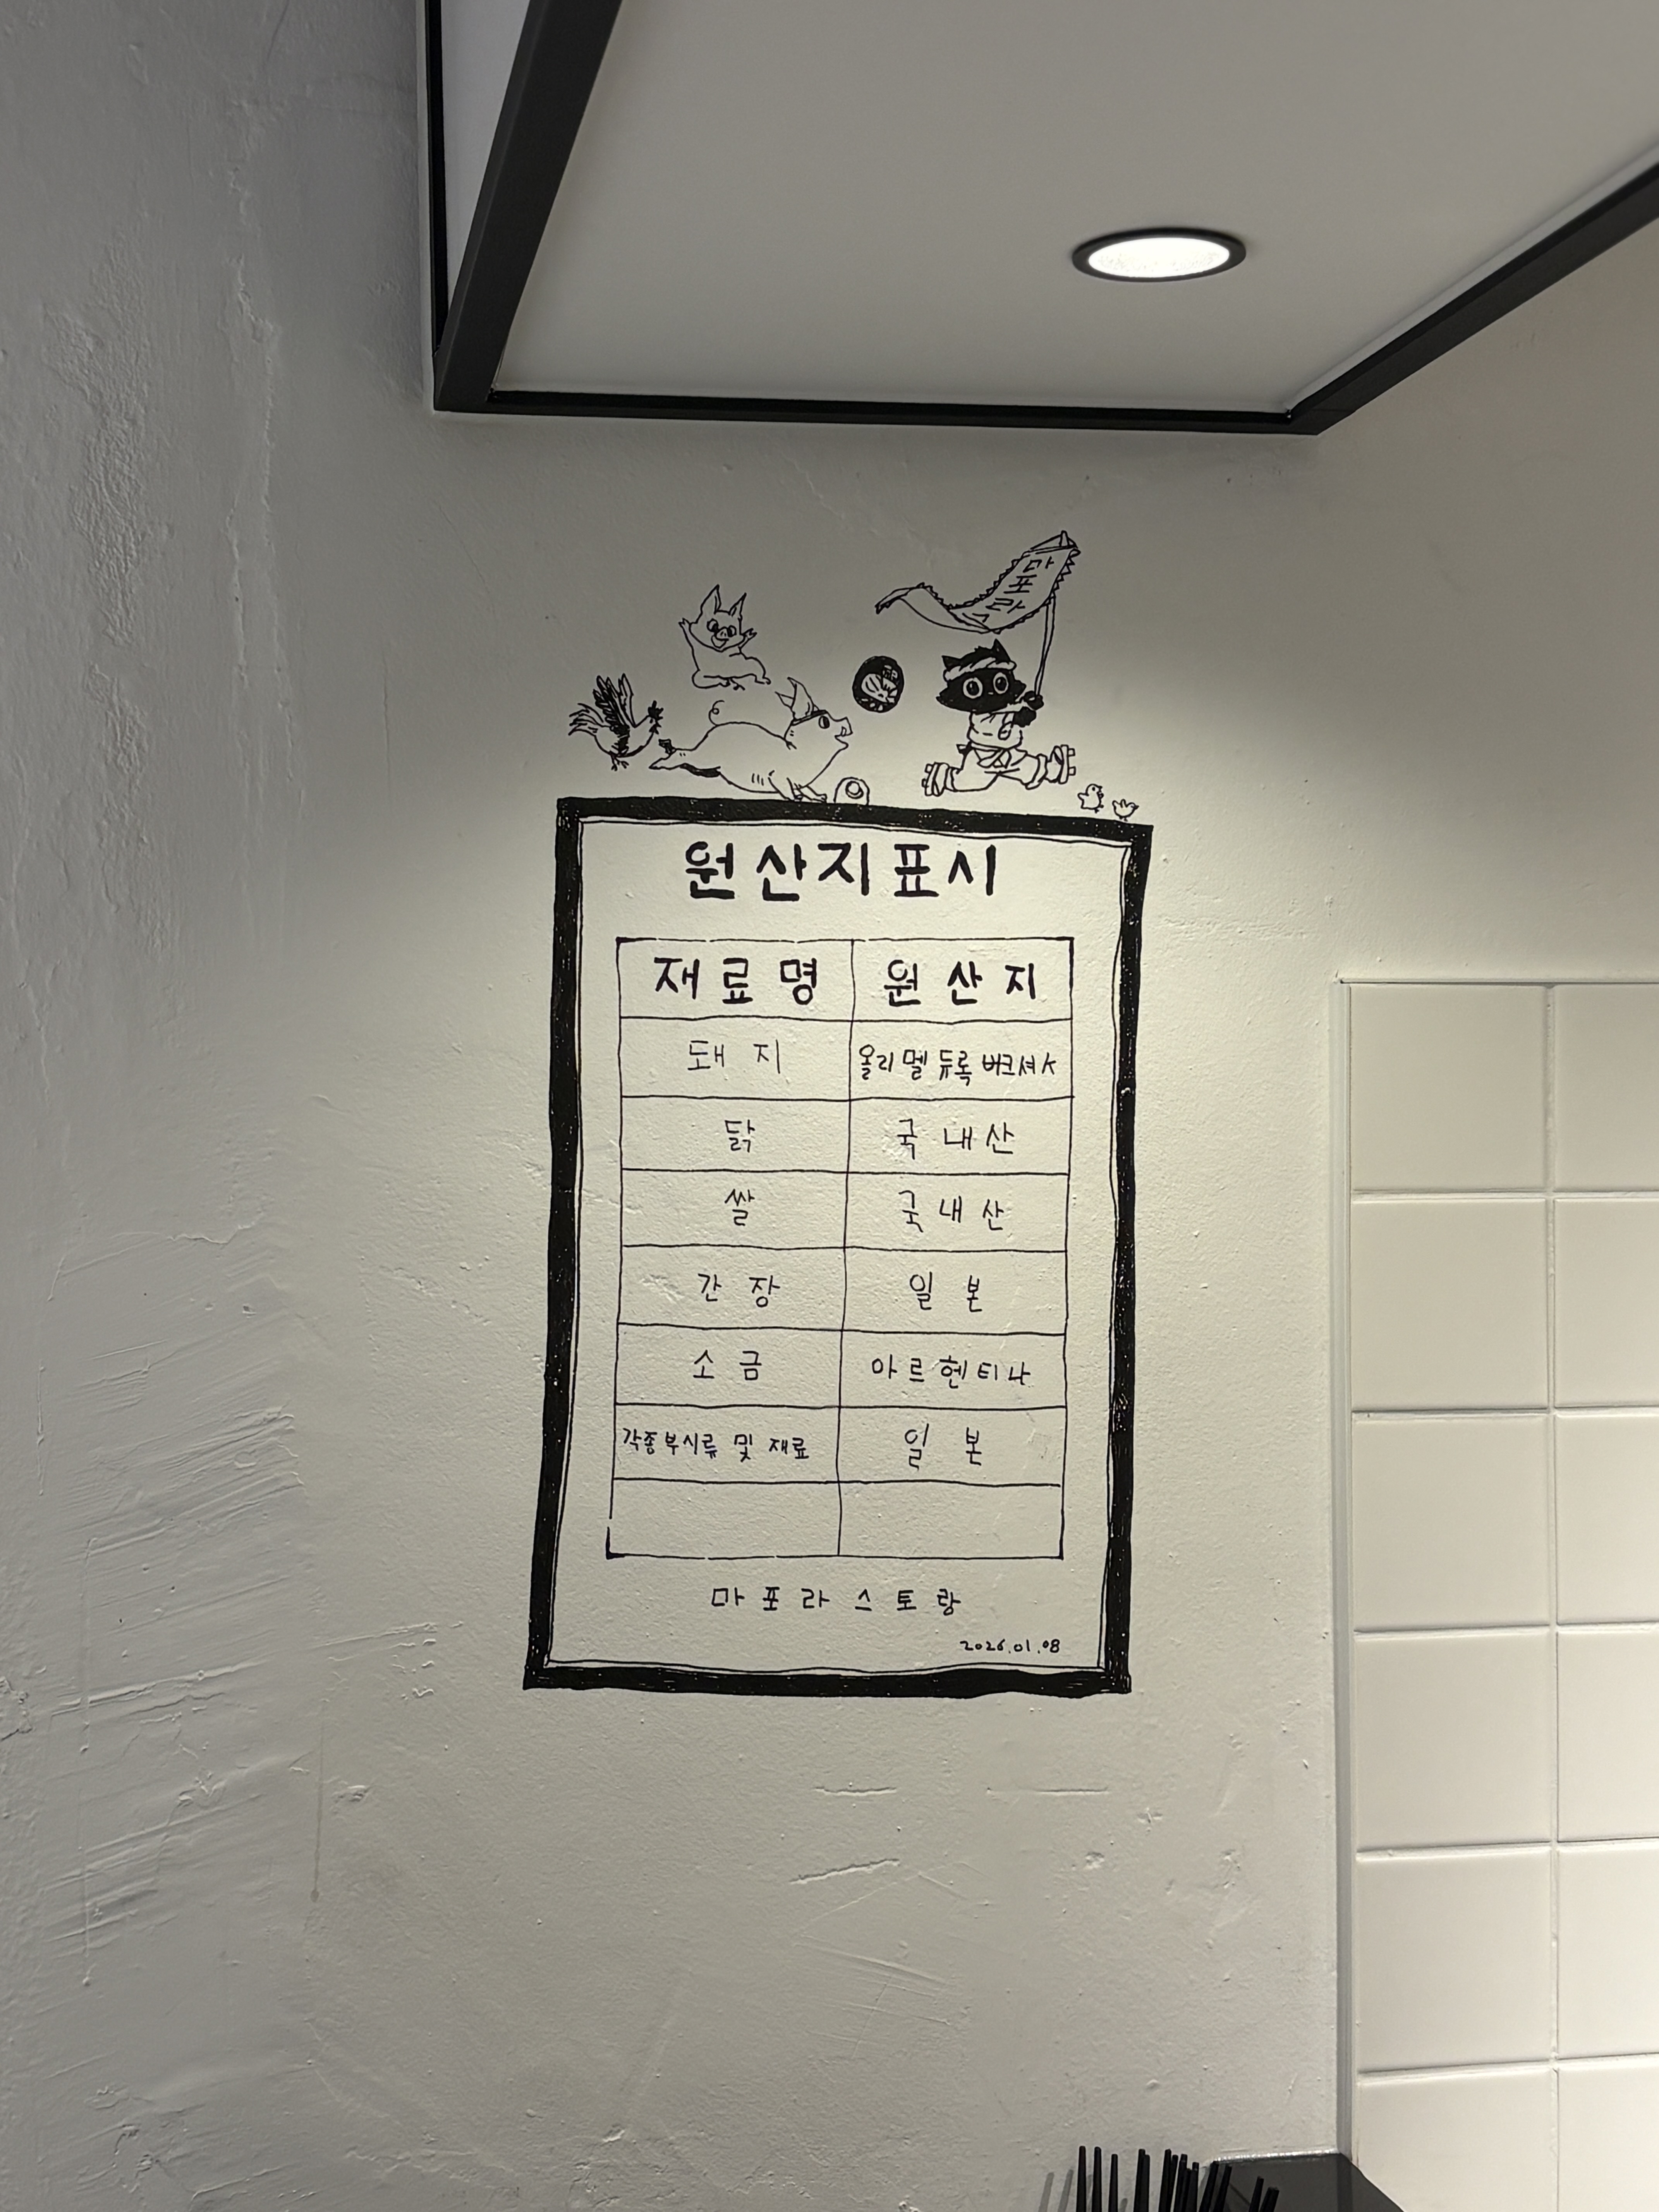 마포라
원산지표시
재료명 원산지
돼지 올리멜 듀록 버크셔K
닭 국내산
쌀 국내산
간장 일본
소금 아르헨티나
각종부시류 및 재료 일본
마포라스토랑
2026.01.08